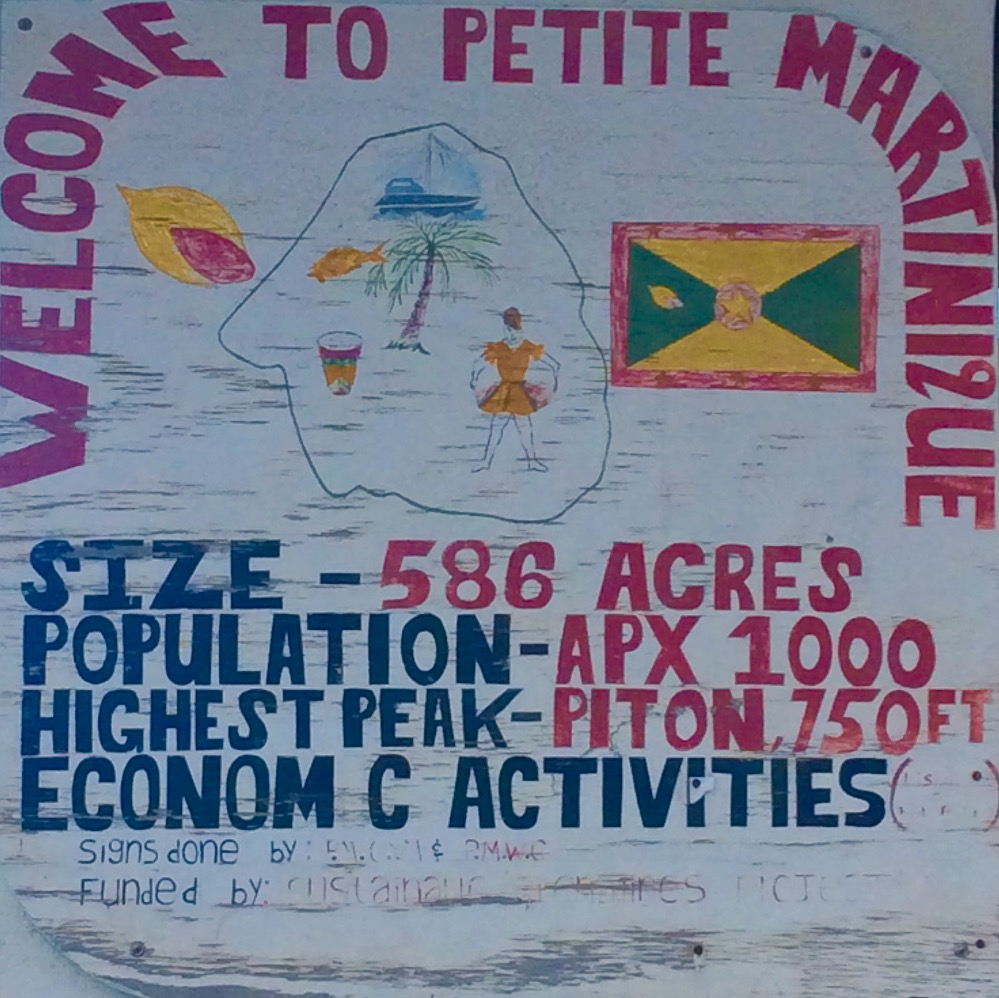 WELCOME TO PETITE MARTINIQUE
SIZE - 586 ACRES
POPULATION - APX 1000
HIGHEST PEAK - PITON, 750FT
ECONOM C ACTIVITIES (
Signs done by: &
Funded by: